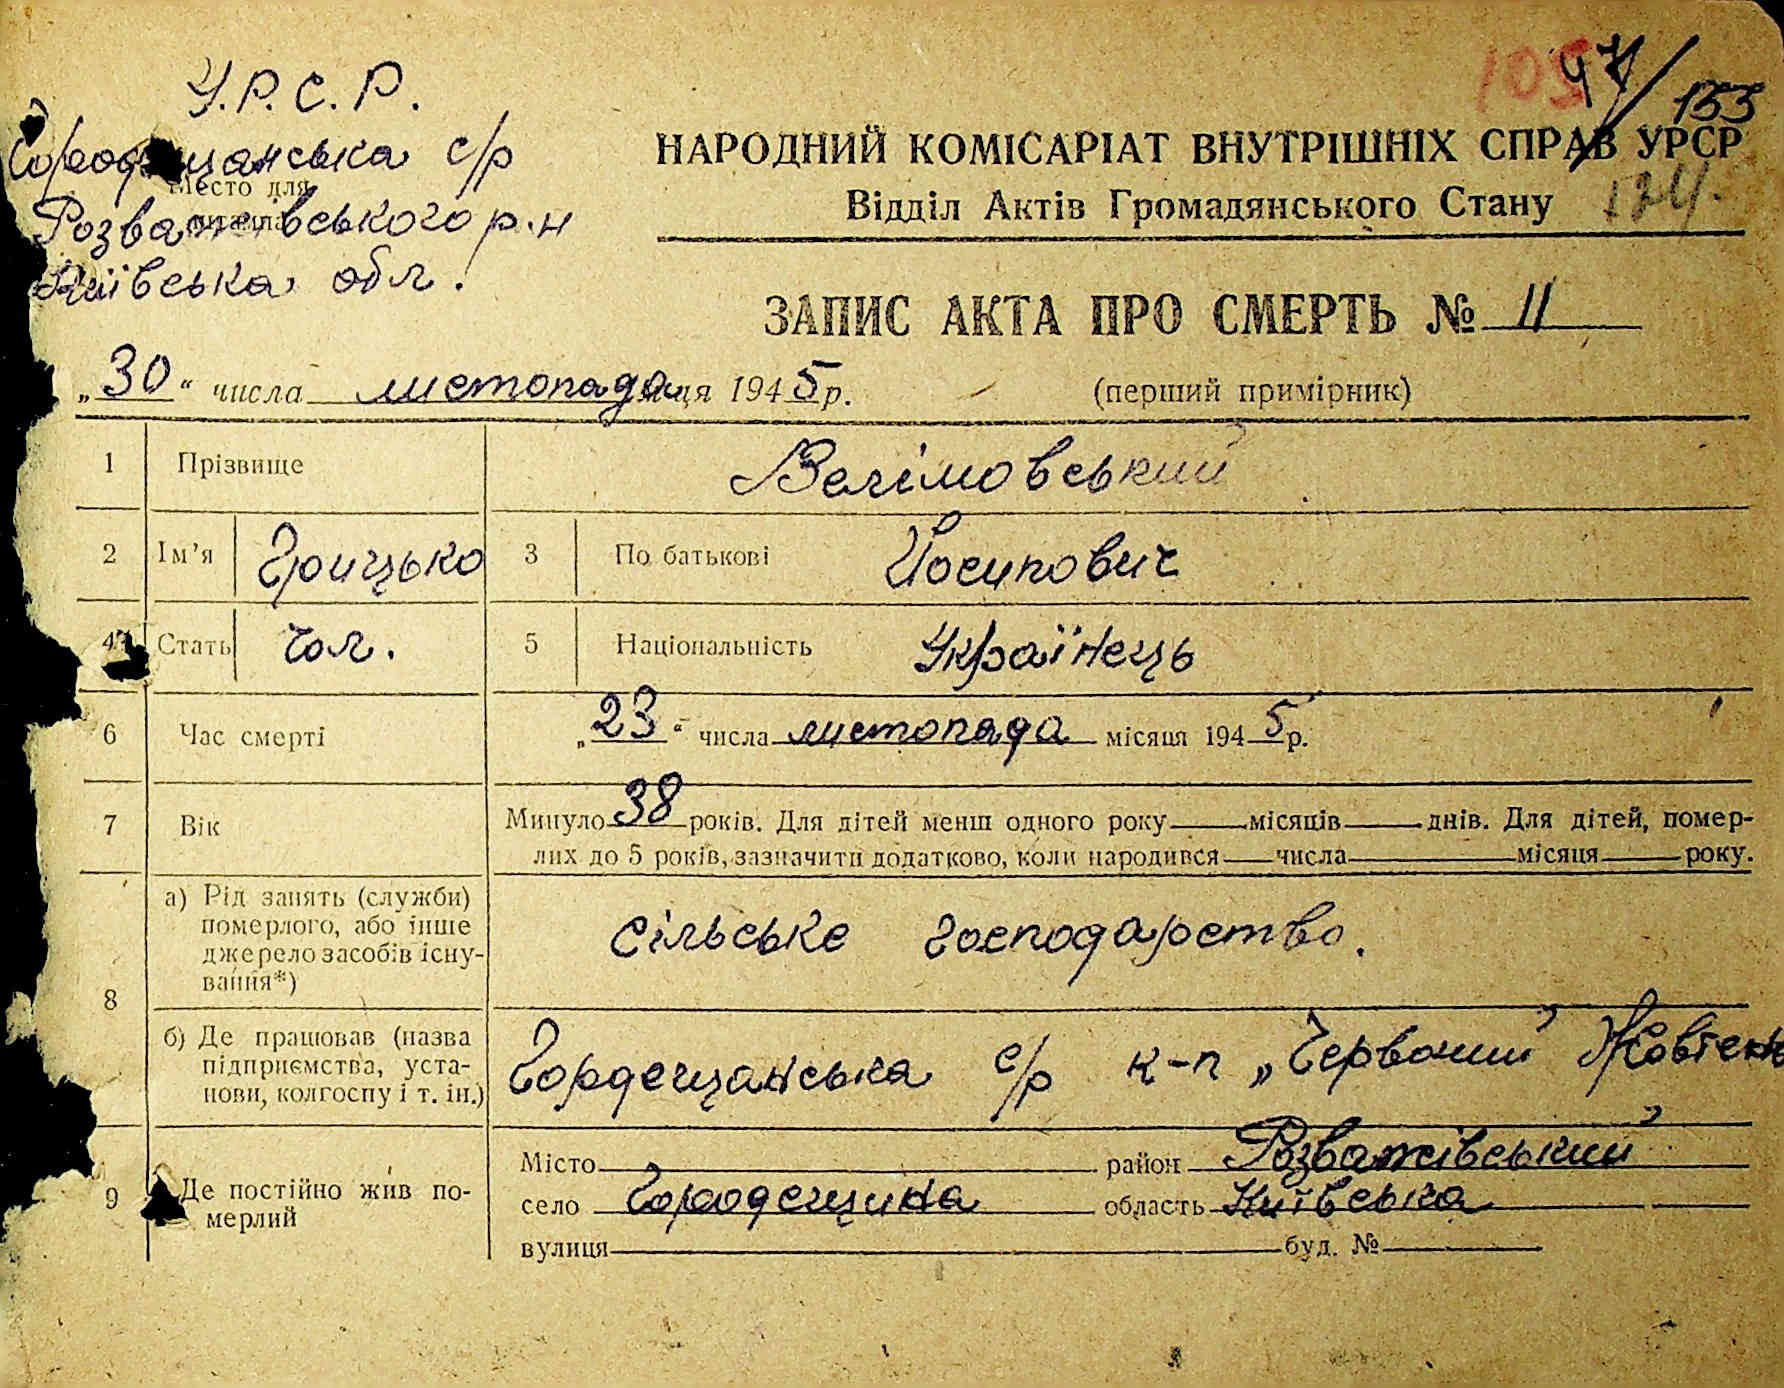 У.Р.С.Р.
с/р
Розважівського р-н
Київська обл.
Место для
47/153
НАРОДНИЙ КОМІСАРІАТ ВНУТРІШНІХ СПРАВ УРСР
Відділ Актів Громадянського Стану
134.
ЗАПИС АКТА ПРО СМЕРТЬ № 11
„30“ числа листопада місяця 1945 р.
(перший примірник)
1 Прізвище Велімовський
2 Ім’я Грицько 3 По батькові Йосипович
4 Стать чол. 5 Національність Українець
6 Час смерті „23“ числа листопада місяця 1945 р.
7 Вік Минуло 38 років. Для дітей менш одного року місяців днів. Для дітей, помер-
лих до 5 років, зазначити додатково, коли народився числа місяця року.
8 а) Рід занять (служби)
померлого, або інше
джерело засобів існу-
вання*)
сільське господарство.
б) Де працював (назва
підприємства, уста-
нови, колгоспу і т. ін.)
Гордещанська с/р к-п „Червоний Жовтень
9 Де постійно жив по-
мерлий
Місто район Розважівський
село Городещина область Київська
вулиця буд. №